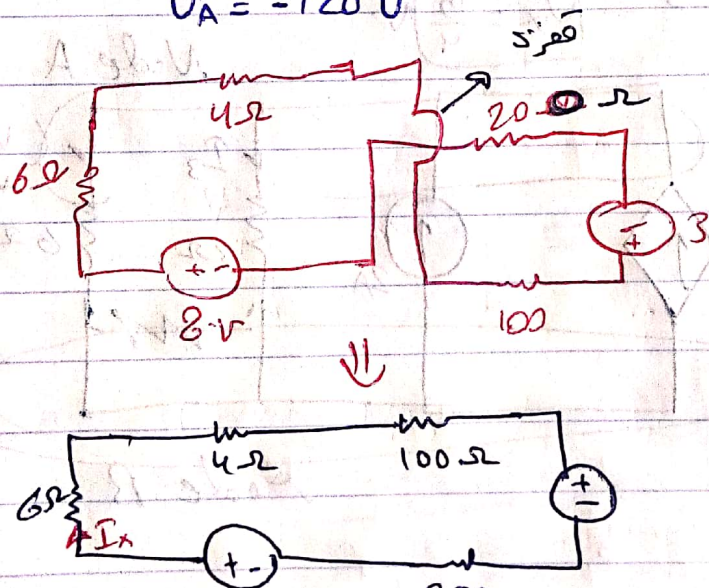 U_A = -120 V
قفزة
4Ω
20 Ω
6Ω
- +
3
+ -
8v
100
4Ω
100Ω
6Ω
+ -
Ix
+ -